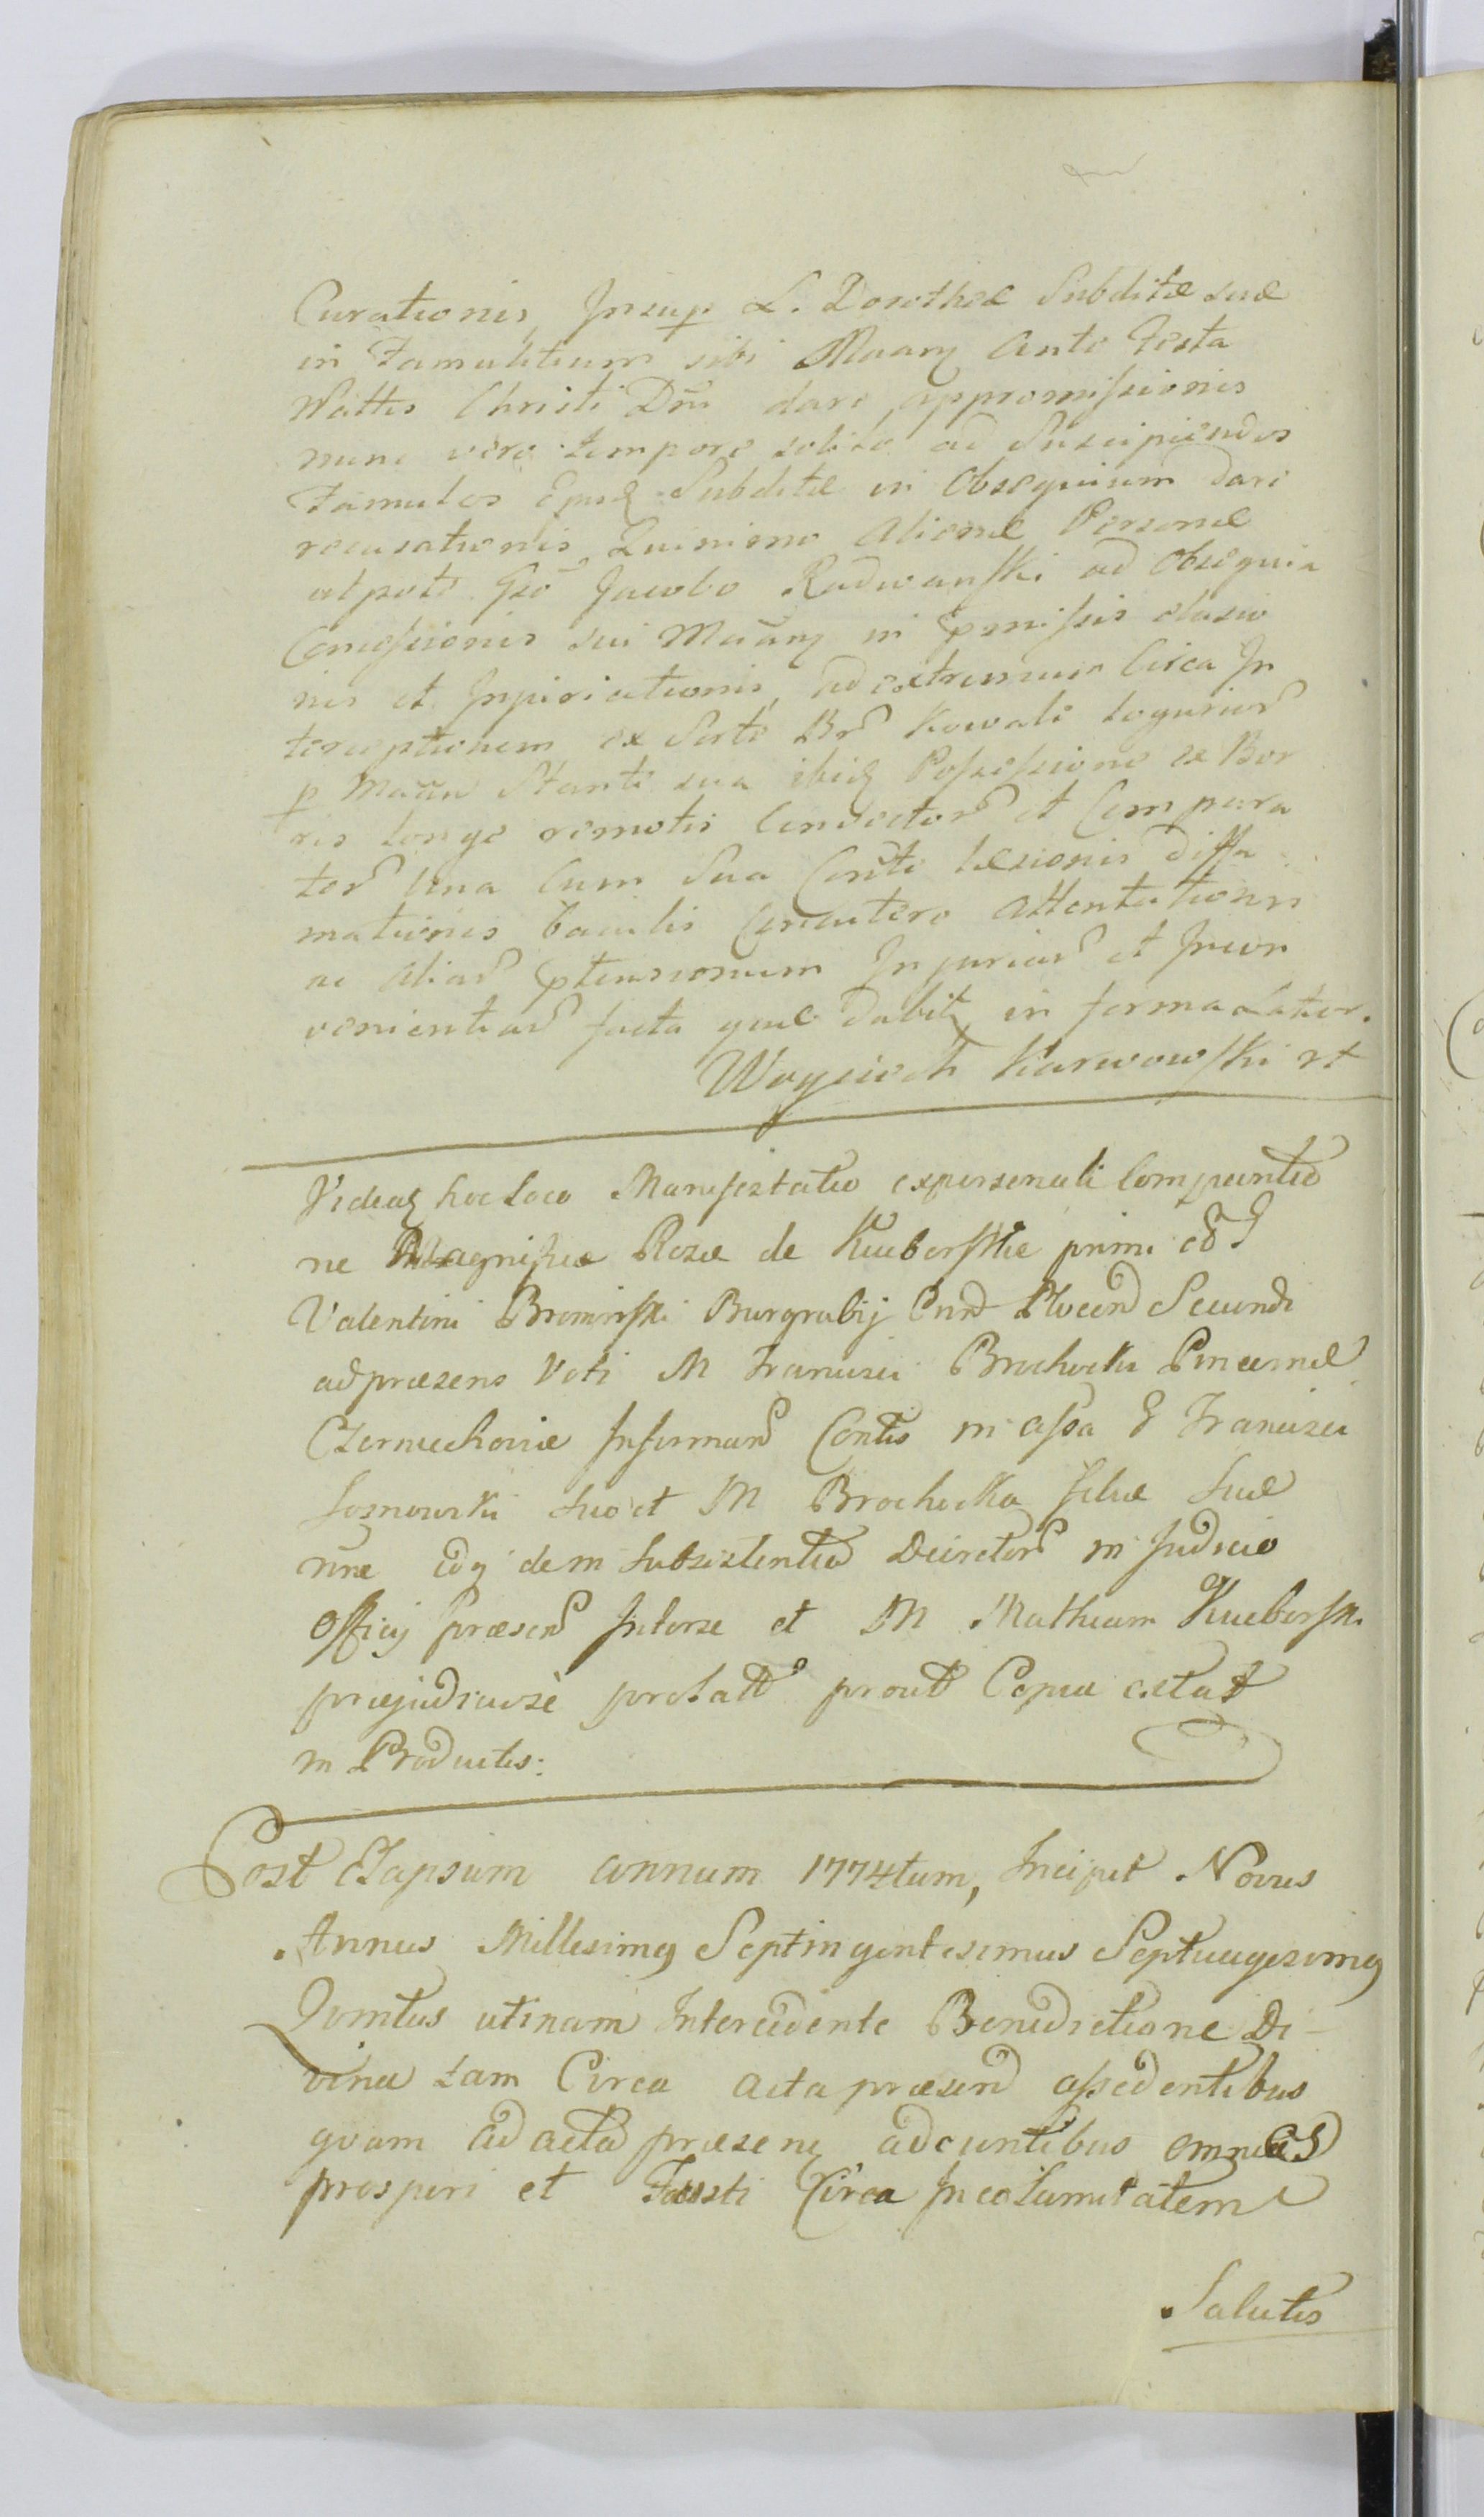 Curationis, Insup L. Dorotheæ Subditæ suæ
in Famulitium sibi Maanz ante Festa
Nattis Christi Dni dare appromissionis
nunc vero tempore solito ad suscipiendos
Famulos Ejusd Subditæ in Obsequium dare
recusationis, Quinimo Alienæ Personæ
utpote Gso Jacobo Radwanski ad obsequia
Concessionis sui Maanz in præmissis elusio
nis et Injuriationis, ad extremum Circa In
terceptionem ex Sorte Br Kowale
p Maan Stante sua ibid Possessione ex Bor
ris longe remotis Convector et Compara
tor Una Cum Sua Conte læsionis diffa
mationis baculis Concutere attentationis
ac aliar prætensionum Injuriar et Incon
venientiar facta quæ dabit in forma Latior.
Woyciech Karwowski
Videatz hoc Loco Manifestatio ex personali Comparitio
ne Magnificæ Rosæ de Kucborskie primi
Valentini Brominski Burgrabij Cnd Plocen Secundi
ad præsens Voti M Francisci Brochocki Pincernæ
Czerniechoviæ Informan Contis in assa G Francisci
Sosnowski suo et M Brochocka filiæ Suæ
nne dem Subsistentia Decretor in Judicio
Officij præsen Interse et M Mathiam Kucborski
præjudiciose prolatt prout Copia extat
in Productis:
Post Elapsum annum 1774tum, Incipit Novus
Annus Millesimq Septingentesimus Septuagesimq
Qvintus utinam Intercedente Benedictione Di-
vina tam Circa acta præsen assedentibus
qvam ad acta præsenz adeuntibus omnia
prosperi et Fausti Circa Incolumitatem
Salutis